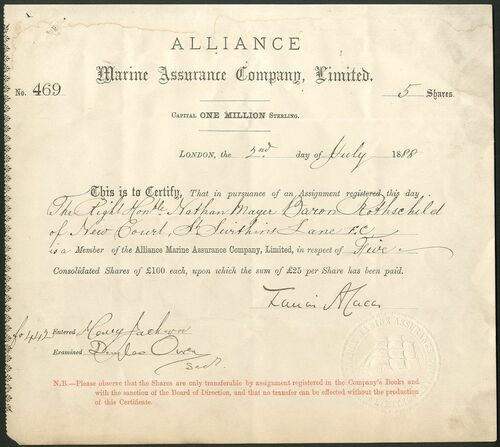 ALLIANCE
Marine Assurance Company, Limited.
No. 469
5 Shares.
CAPITAL ONE MILLION STERLING.
LONDON, the 2nd day of July 1888
This is to Certify, That in pursuance of an Assignment registered this day
The Right Honble Nathan Mayer Baron Rothschild
of New Court, St Swithins Lane E.C.
is a Member of the Alliance Marine Assurance Company, Limited, in respect of Five
Consolidated Shares of £100 each, upon which the sum of £25 per Share has been paid.
fo 442 Entered Henry Jackson
Examined Douglas Owen
Secy.
N.B.—Please observe that the Shares are only transferable by assignment registered in the Company's Books and
with the sanction of the Board of Direction, and that no transfer can be effected without the production
of this Certificate.